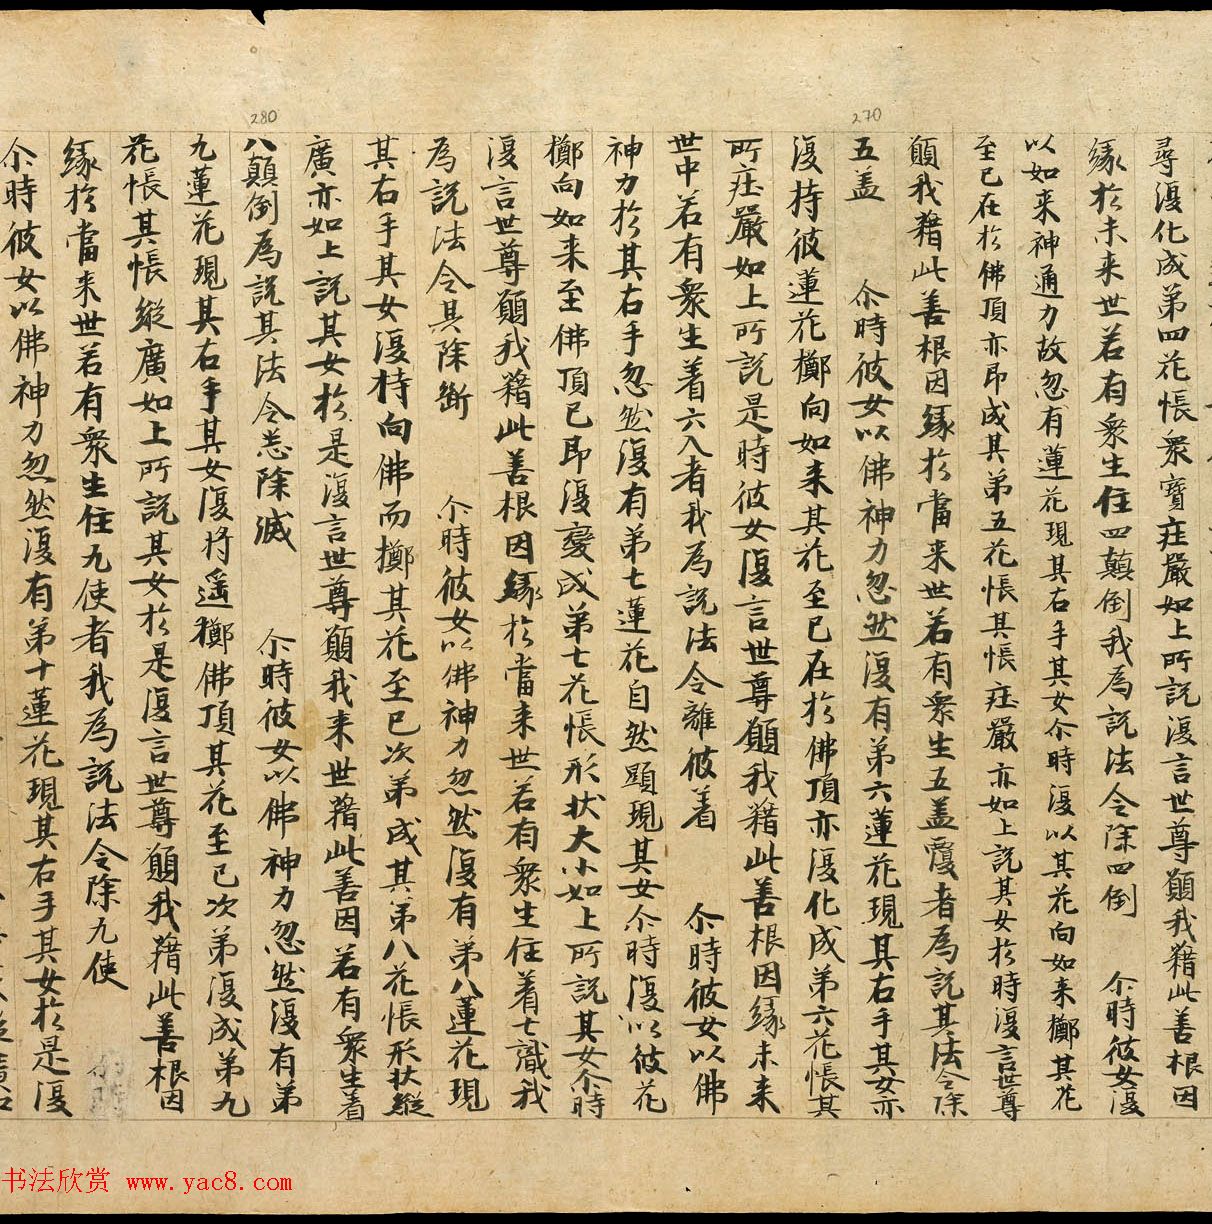 尋復化成第四花帳衆寶莊嚴如上所説復言世尊願我藉此善根因
緣於未来世若有衆生住四顛倒我為説法令除四倒　尒時彼女復
以如来神通力故忽有蓮花現其右手其女尒時復以其花向如来擲其花
至已在於佛頂亦即成其第五花帳其帳莊嚴亦如上説其女於時復言世尊
願我藉此善根因緣於當来世若有衆生五盖覆者為説其法令除
五盖　尒時彼女以佛神力忽然復有第六蓮花現其右手其女亦
復持彼蓮花擲向如来其花至已在於佛頂亦復化成第六花帳其
所莊嚴如上所説是時彼女復言世尊願我藉此善根因緣未来
世中若有衆生着六入者我為説法令離彼着　尒時彼女以佛
神力於其右手忽然復有第七蓮花自然顯現其女尒時復以彼花
擲向如来至佛頂已即復變成第七花帳形状大小如上所説其女尒時
復言世尊願我藉此善根因緣於當来世若有衆生住着七識我
為説法令其除断　尒時彼女以佛神力忽然復有第八蓮花現
其右手其女復持向佛而擲其花至已次第成其第八花帳形状縱
廣亦如上説其女於是復言世尊願我来世藉此善因若有衆生着
八顛倒為説其法令悉除滅　尒時彼女以佛神力忽然復有第
九蓮花現其右手其女復将遥擲佛頂其花至已次第復成第九
花帳其帳縱廣如上所説其女於是復言世尊願我藉此善根因
緣於當来世若有衆生住九使者我為説法令除九使
尒時彼女以佛神力忽然復有第十蓮花現其右手其女於是復
270
280
书法欣赏 www.yac8.com